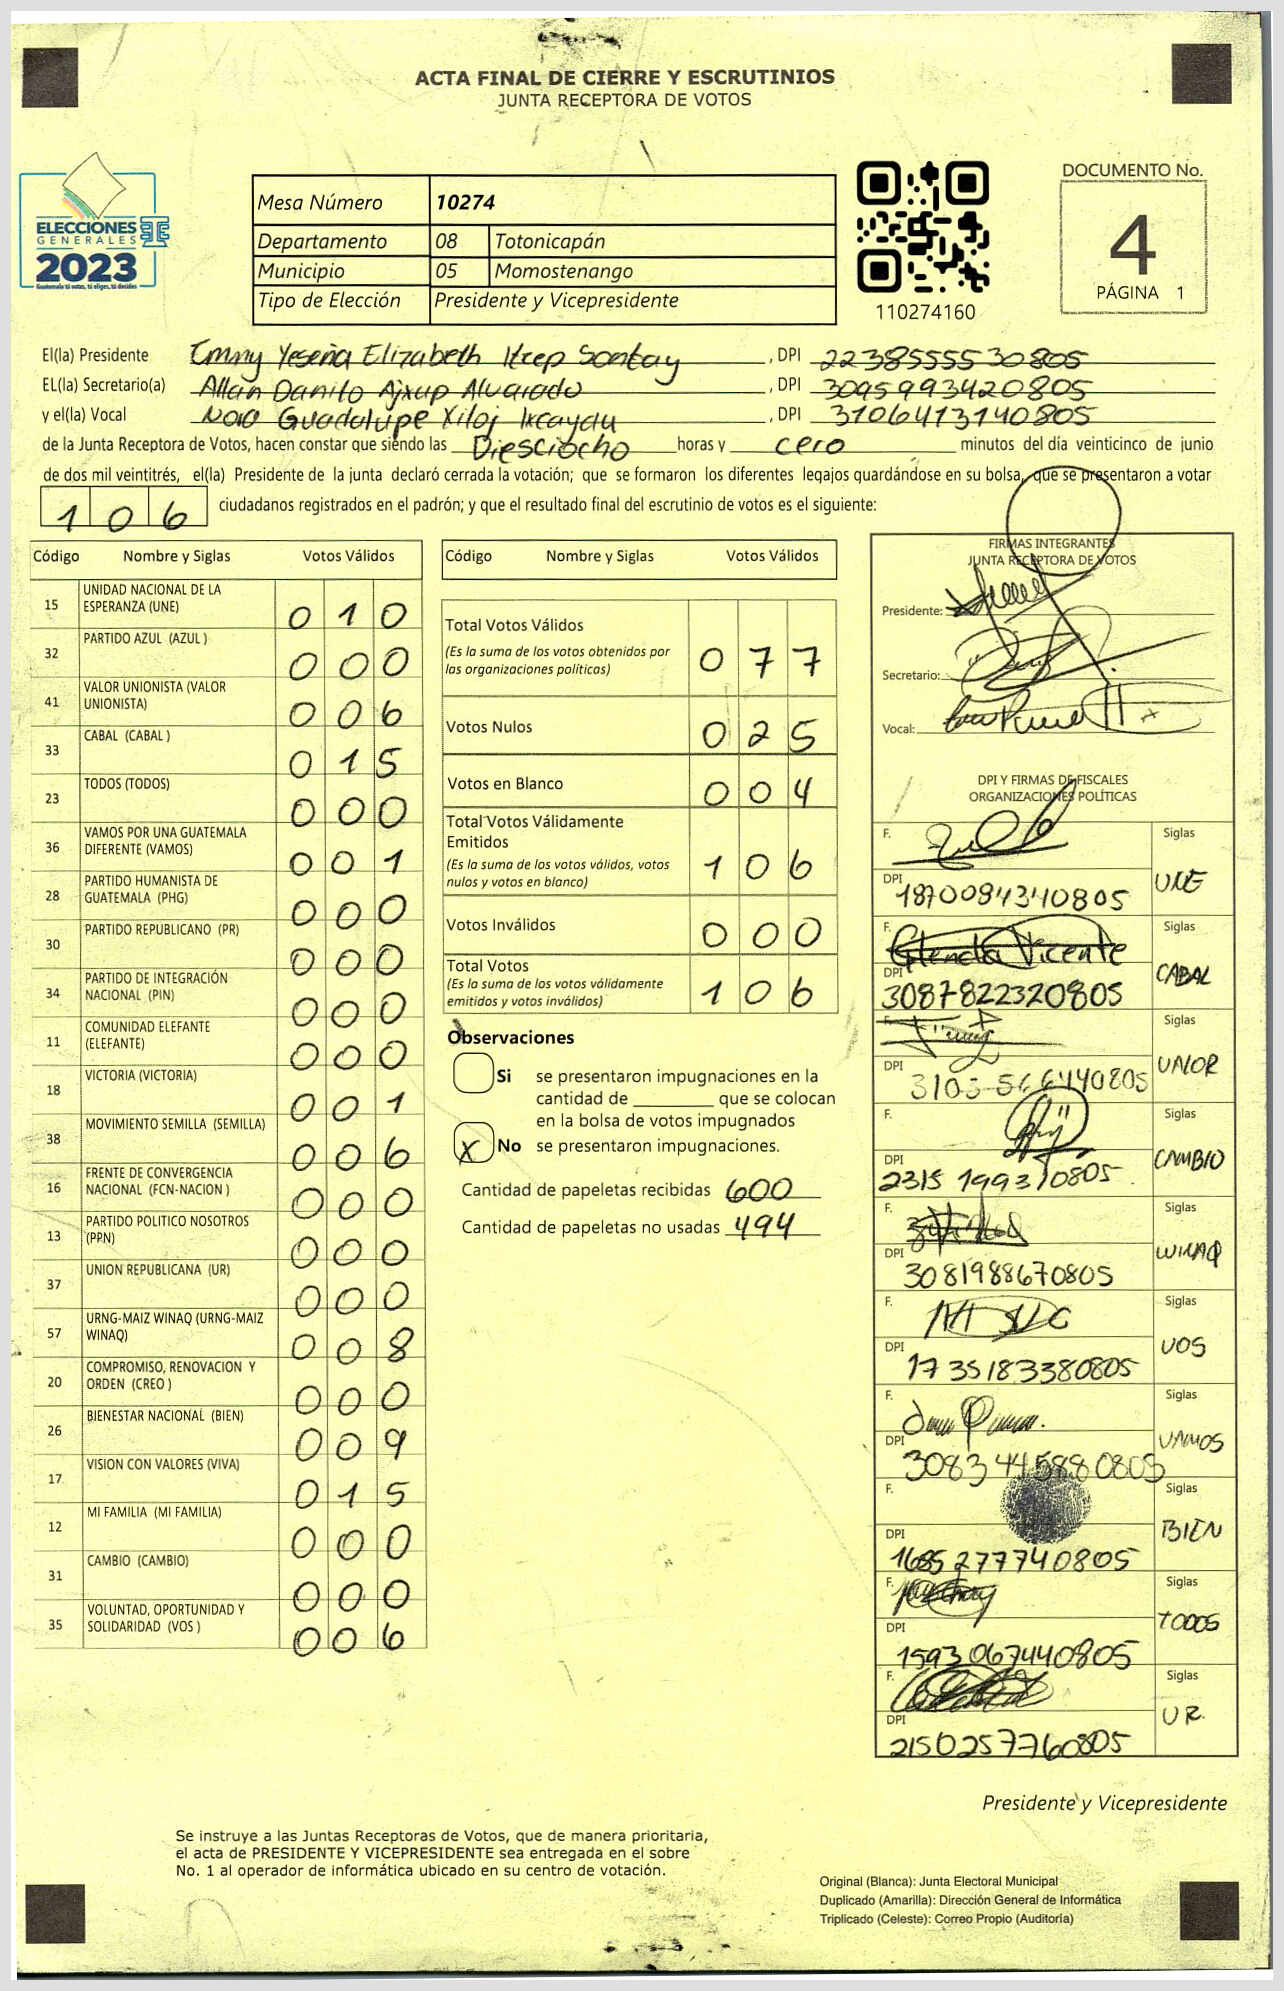 ACTA FINAL DE CIERRE Y ESCRUTINIOS
JUNTA RECEPTORA DE VOTOS
ELECCIONES
GENERALES
2023
Guatemala tú votas, tú eliges, tú decides
Mesa Número 10274
Departamento 08 Totonicapán
Municipio 05 Momostenango
Tipo de Elección Presidente y Vicepresidente
110274160
DOCUMENTO No.
4
PÁGINA 1
El(la) Presidente Emmy Yeseña Elizabeth Itzep Sontay, DPI 2238555530805
EL(la) Secretario(a) Allan Danilo Ajxup Alvarado, DPI 3095993420805
y el(la) Vocal Guadalupe Xiloj Ixcayau, DPI 3106413140805
de la Junta Receptora de Votos, hacen constar que siendo las Diesciocho horas y cero minutos del día veinticinco de junio
de dos mil veintitrés, el(la) Presidente de la junta declaró cerrada la votación; que se formaron los diferentes legajos guardándose en su bolsa, que se presentaron a votar
106 ciudadanos registrados en el padrón; y que el resultado final del escrutinio de votos es el siguiente:
Código Nombre y Siglas Votos Válidos
15 UNIDAD NACIONAL DE LA ESPERANZA (UNE) 010
32 PARTIDO AZUL (AZUL ) 000
41 VALOR UNIONISTA (VALOR UNIONISTA) 006
33 CABAL (CABAL ) 015
23 TODOS (TODOS) 000
36 VAMOS POR UNA GUATEMALA DIFERENTE (VAMOS) 001
28 PARTIDO HUMANISTA DE GUATEMALA (PHG) 000
30 PARTIDO REPUBLICANO (PR) 000
34 PARTIDO DE INTEGRACIÓN NACIONAL (PIN) 000
11 COMUNIDAD ELEFANTE (ELEFANTE) 000
18 VICTORIA (VICTORIA) 001
38 MOVIMIENTO SEMILLA (SEMILLA) 006
16 FRENTE DE CONVERGENCIA NACIONAL (FCN-NACION ) 000
13 PARTIDO POLITICO NOSOTROS (PPN) 000
37 UNION REPUBLICANA (UR) 000
57 URNG-MAIZ WINAQ (URNG-MAIZ WINAQ) 008
20 COMPROMISO, RENOVACION Y ORDEN (CREO ) 000
26 BIENESTAR NACIONAL (BIEN) 009
17 VISION CON VALORES (VIVA) 015
12 MI FAMILIA (MI FAMILIA) 000
31 CAMBIO (CAMBIO) 000
35 VOLUNTAD, OPORTUNIDAD Y SOLIDARIDAD (VOS ) 006
Código Nombre y Siglas Votos Válidos
Total Votos Válidos 077
(Es la suma de los votos obtenidos por
las organizaciones políticas)
Votos Nulos 025
Votos en Blanco 004
Total Votos Válidamente
Emitidos 106
(Es la suma de los votos válidos, votos
nulos y votos en blanco)
Votos Inválidos 000
Total Votos 106
(Es la suma de los votos válidamente
emitidos y votos inválidos)
Observaciones
Si se presentaron impugnaciones en la
cantidad de ________ que se colocan
en la bolsa de votos impugnados
X No se presentaron impugnaciones.
Cantidad de papeletas recibidas 600
Cantidad de papeletas no usadas 494
FIRMAS INTEGRANTES
JUNTA RECEPTORA DE VOTOS
Presidente:
Secretario:
Vocal:
DPI Y FIRMAS DE FISCALES
ORGANIZACIONES POLÍTICAS
F. Siglas
DPI 1870084340805 UNE
F. Glenda Vicente Siglas
DPI 3087822320805 CABAL
F. Siglas
DPI VALOR
F. Siglas
DPI 2315 199310805 CAMBIO
F. Siglas
DPI 3081988670805 WINAQ
F. Siglas
DPI 1735183380805 VOS
F. Siglas
DPI 3083445880805 VAMOS
F. Siglas
DPI 1685277740805 BIEN
F. Siglas
DPI 1593067440805 TODOS
F. Siglas
DPI 2150257760805 UR.
Presidente y Vicepresidente
Se instruye a las Juntas Receptoras de Votos, que de manera prioritaria,
el acta de PRESIDENTE Y VICEPRESIDENTE sea entregada en el sobre
No. 1 al operador de informática ubicado en su centro de votación.
Original (Blanca): Junta Electoral Municipal
Duplicado (Amarilla): Dirección General de Informática
Triplicado (Celeste): Correo Propio (Auditoría)